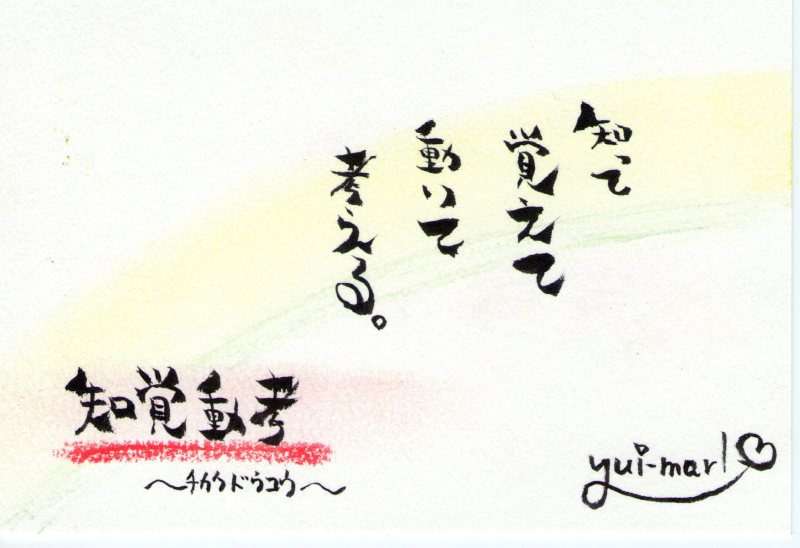 知って
覚えて
動いて
考える。
知覚動考
〜チカクドウコウ〜
yui-marl